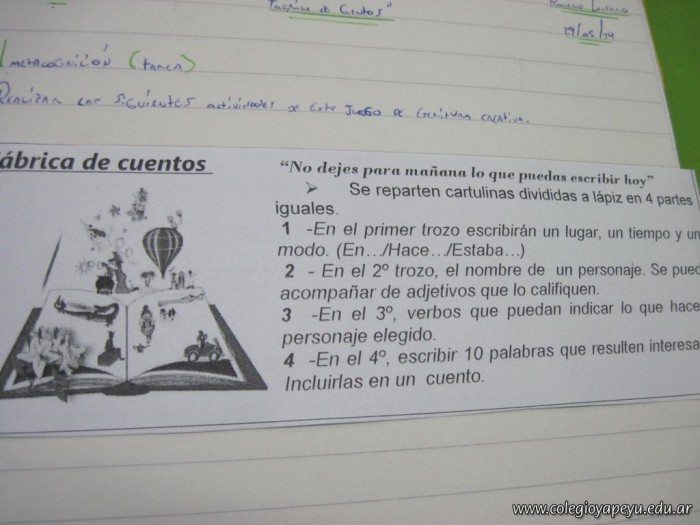 "Fábrica de Cuentos"
29/05/14
METACOGNICIÓN (tarea)
REALIZAR LAS SIGUIENTES actividades de este JUEGO DE ESCRITURA creativa.
ábrica de cuentos
"No dejes para mañana lo que puedas escribir hoy"
➤ Se reparten cartulinas divididas a lápiz en 4 partes
iguales.
1 -En el primer trozo escribirán un lugar, un tiempo y un
modo. (En.../Hace.../Estaba...)
2 - En el 2º trozo, el nombre de un personaje. Se pued
acompañar de adjetivos que lo califiquen.
3 -En el 3º, verbos que puedan indicar lo que hace
personaje elegido.
4 -En el 4º, escribir 10 palabras que resulten interesa
Incluirlas en un cuento.
www.colegioyapeyu.edu.ar